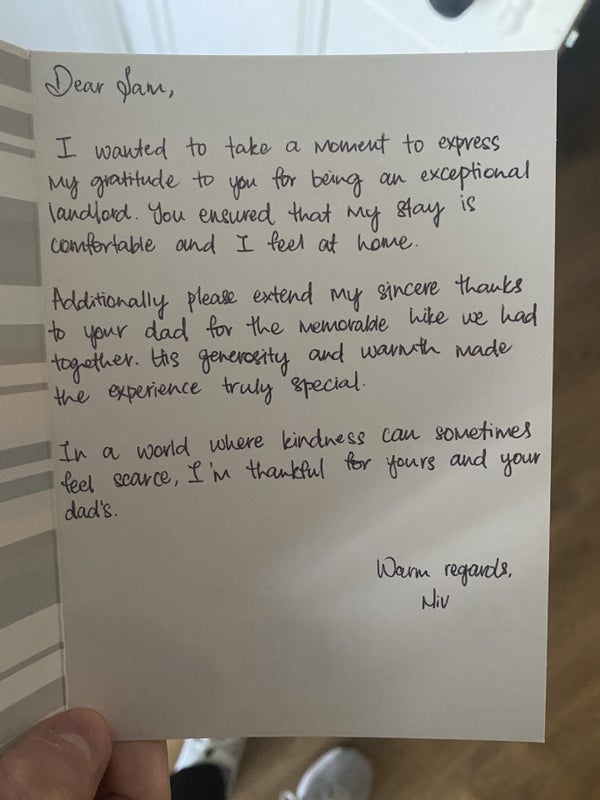 Dear Sam,
I wanted to take a moment to express
my gratitude to you for being an exceptional
landlord. You ensured that my stay is
comfortable and I feel at home.
Additionally please extend my sincere thanks
to your dad for the memorable hike we had
together. His generosity and warmth made
the experience truly special.
In a world where kindness can sometimes
feel scarce, I'm thankful for yours and your
dad's.
Warm regards,
Niv